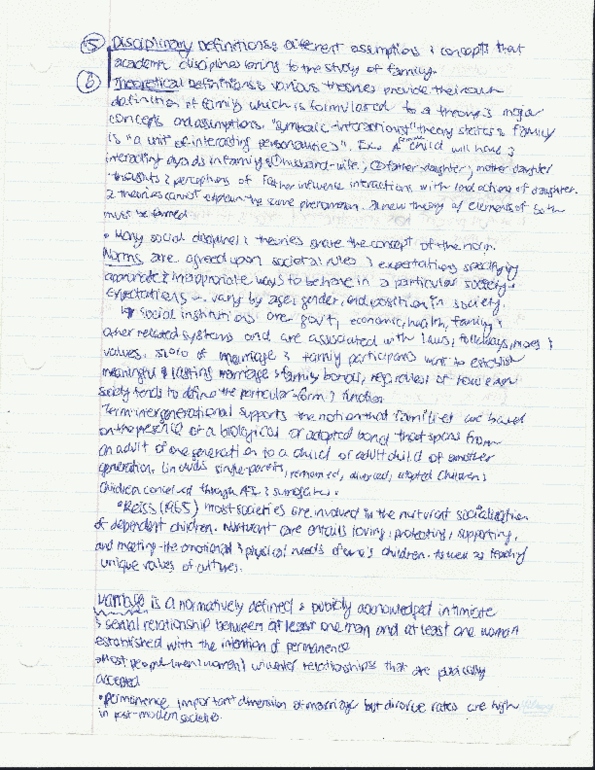 ⑤ Disciplinary Definitions: Different assumptions & concepts that
academic disciplines bring to the study of family.
⑥ Theoretical Definitions: various theories provide their own
definition of family which is formulated to a theory's major
concepts and assumptions. "symbolic-interactionist" theory states a family
is "a unit of interacting personalities". Ex. A female child will have 3
interacting dyads in family: ① husband-wife, ② father-daughter, mother daughter
thoughts & perceptions of Father influence interactions with and actions of daughter.
2 theories cannot explain the same phenomenon. A new theory w/ elements of both
must be formed
• Many social disciplines & theories share the concept of the norm.
Norms are agreed upon societal rules & expectations specifying
appropriate & inappropriate ways to behave in a particular society.
Expectations vary by age, gender, and position in society.
↳ social institutions are gov't, economic, health, family &
other related systems and are associated with laws, folkways, mores &
values. of marriage & family participants want to establish
meaningful & lasting marriage & family bonds, regardless of how each
society tends to define the particular form & function
Term intergenerational supports the notion that families are based
on the presence of a biological or adopted bond that spans from
an adult of one generation to a child or adult child of another
generation. Includes single-parents, remarried, divorced, adopted children &
children conceived through A.I. & surrogates.
• Reiss (1965) most societies are involved in the nurturant socialization
of dependent children. Nurturant care entails loving, protecting, supporting,
and meeting the emotional & physical needs of one's children. As well as teaching
unique values of cultures.
Marriage is a normatively defined & publicly acknowledged intimate
& sexual relationship between at least one man and at least one woman
established with the intention of permanence
• Most people (men & women) will enter relationships that are publicly
accepted
• permanence, important dimension of marriage but divorce rates are high
in post-modern societies.